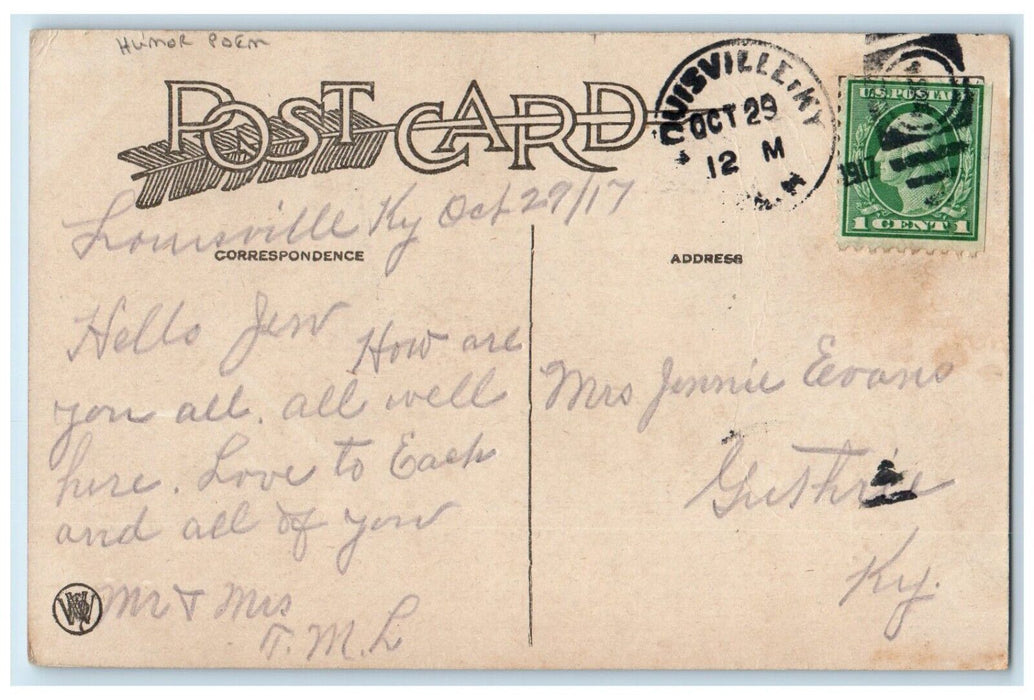 HUMOR POEM
POST CARD
LOUISVILLE, KY
OCT 29
12 M
1917
U.S. POSTAGE
1 CENT 1
Louisville Ky Oct 29/17
CORRESPONDENCE
Hello Jen
How are
you all. all well
here. Love to Each
and all of you
Mr & Mrs
T. M. L
ADDRESS
Mrs Jennie Evans
Guthrie
Ky.